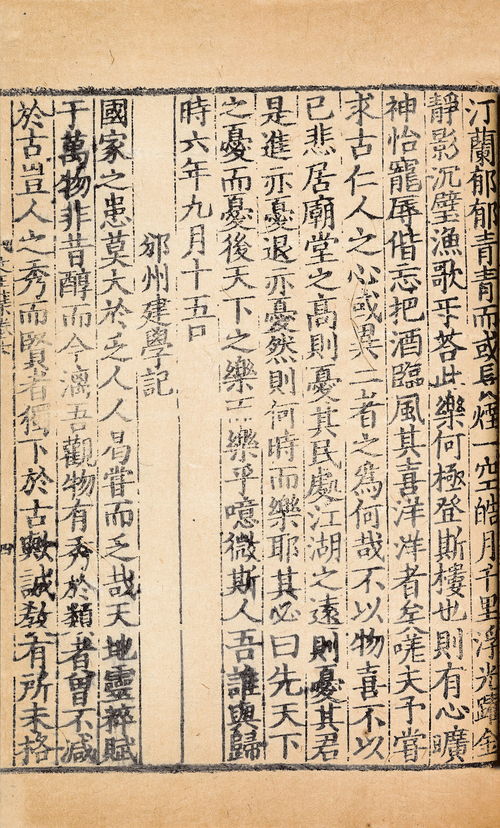 汀蘭郁郁青青而或長煙一空皓月千里浮光躍金
靜影沉璧漁歌㸦荅此樂何極登斯樓也則有心曠
神怡寵辱偕忘把酒臨風其喜洋洋者矣嗟夫予嘗
求古仁人之心或異二者之為何哉不以物喜不以
己悲居廟堂之高則憂其民處江湖之遠則憂其君
是進亦憂退亦憂然則何時而樂耶其必曰先天下
之憂而憂後天下之樂而樂乎噫微斯人吾誰與歸
時六年九月十五日
邠州建學記
國家之患莫大於乏人人曷嘗而乏哉天地靈粹賦
于萬物非昔醇而今漓吾觀物有秀於類者曾不減
於古豈人之秀而賢者獨下於古歟誠教有所未格